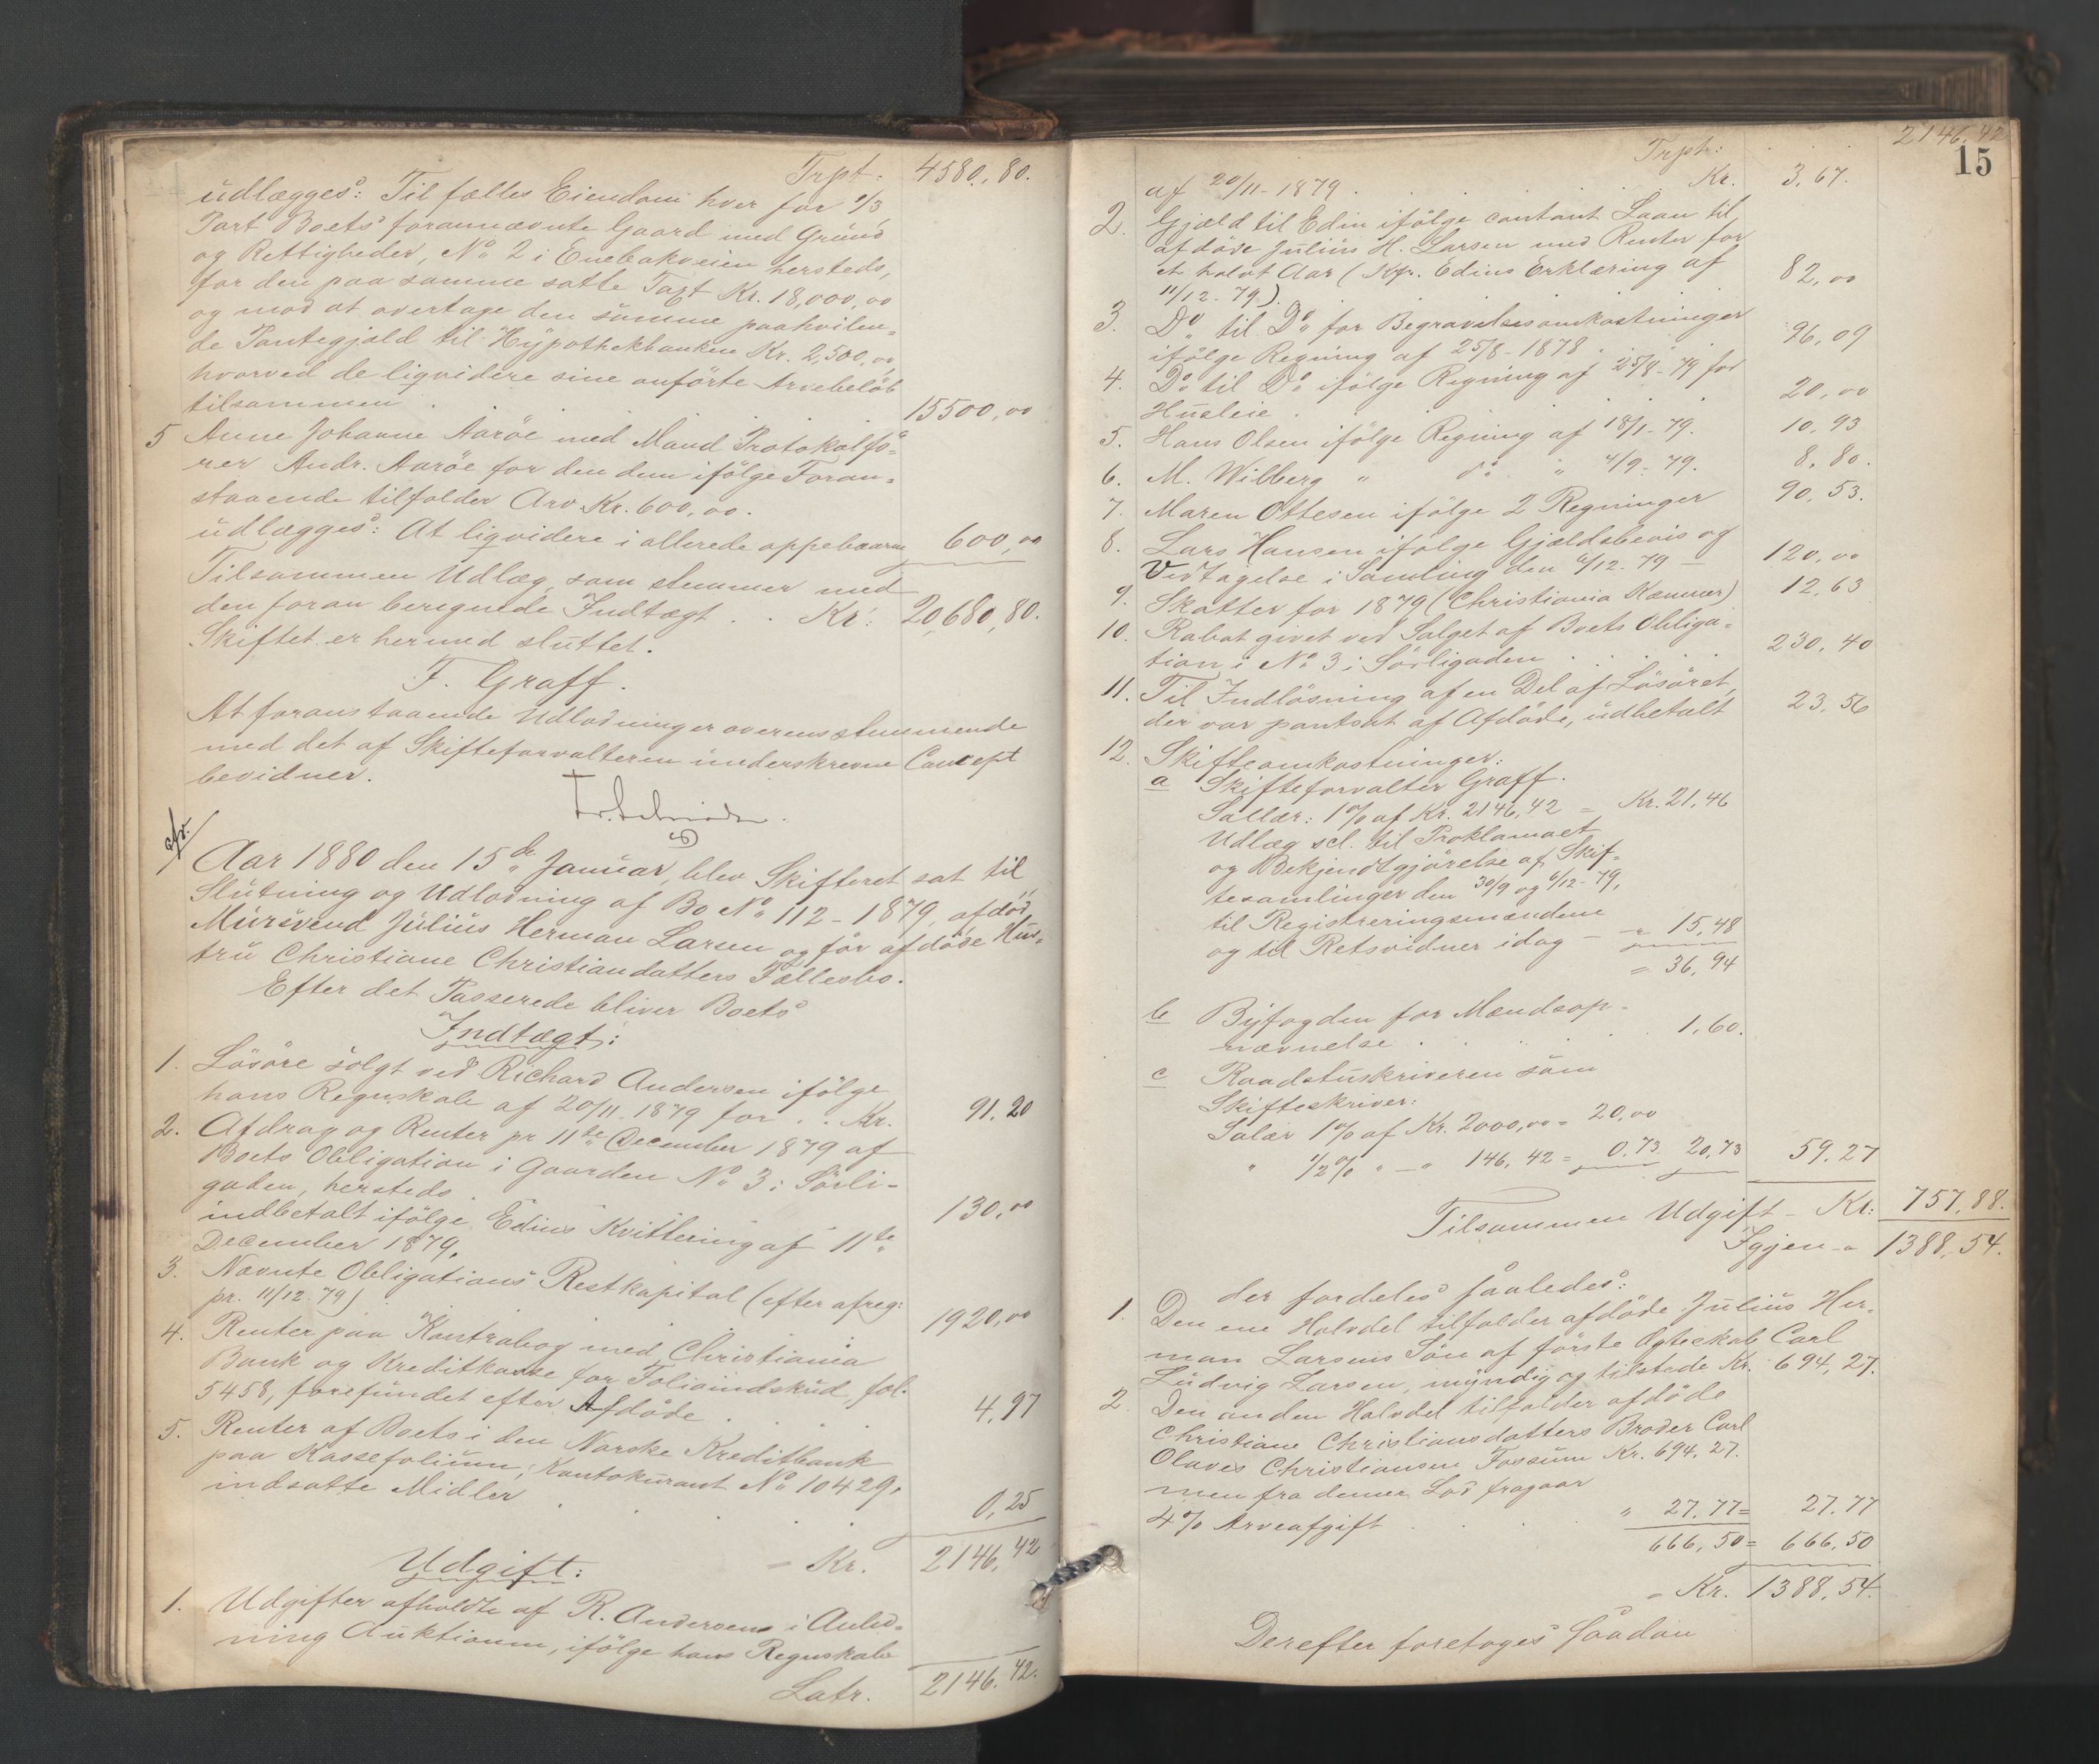 Trpt: 4580,80.
udlægges: Til fælles Eiendom hver for 1/3
Part Boets forannævnte Gaard med Grund
og Rettigheder, No 2 i Enebakveien hersteds,
for den paa samme satte Taxt Kr. 18,000,00
og mod at overtage den samme paahvilen=
de Pantegjæld til Hypothekbanken Kr. 2,500,00,
hvorved de liqvidere sine anførte Arvebeløb
tilsammen . . . . 15500,00
5 Anne Johanne Aarøe med Mand Protokolfø=
rer Andr. Aarøe for den dem ifølge Foran=
staaende tilfalden Arv Kr. 600,00.
udlægges: At liqvidere i allerede oppebaarne 600,00
Tilsammen Udlæg, som stemmer med
den foran beregnede Indtægt . . Kr: 20,680,80.
Skiftet er hermed sluttet.
F. Graff.
At foranstaaende Udlodning er overensstemmende
med det af Skifteforvalteren underskrevne Concept
bevidner.
Aar 1880 den 15de Januar, blev Skifteret sat til
Slutning og Udlodning af Bo No 112-1879, afdød
Mursvend Julius Herman Larsen og før afdøde Hus=
tru Christiane Christiansdatters Fællesbo.
Efter det Passerede bliver Boets
Indtægt:
1. Løsøre solgt ved Richard Andersen ifølge
hans Regnskab af 20/11-1879 for . . Kr. 91.20
2. Afdrag og Renter pr 11te December 1879 af
Boets Obligation i Gaarden No 3 i Sørli-
gaden, hersteds .
indbetalt ifølge Edins Kvittering af 11te 130,00
December 1879.
3. Nævnte Obligations Restkapital (efter afreg:
pr. 11/12.79) . . . 1920,00
4. Renter paa Kontrabog med Christiania
Bank og Kreditkasse for Folioindskud fol.
5458, forefundet efter Afdøde . . . . 4,97
5. Renter af Boets i den Norske Kreditbank
paa Kassefolium, Kontokurant No 10429,
indsatte Midler . . . . 0,25
= Kr. 2146,42
Udgift:
1. Udgifter afholdte af R. Andersen i Anled=
ning Auktionen, ifølge hans Regnskab
Latr. 2146.42.
2146,42
15
Trpt:
af 20/11-1879 . . . Kr. 3,67.
2. Gjæld til Edin ifølge contant Laan til
afdøde Julius H. Larsen med Renter for
et halvt Aar (Kfr. Edins Erklæring af
11/12-79). 82,00
3. Do til Do for Begravelsesomkostninger
ifølge Regning af 25/8-1878 . 96,09
4. Do til Do ifølge Regning af 25/8-79 for
Husleie . . . . . 20,00
5. Hans Olsen ifølge Regning af 18/1-79. 10,93
6. M. Wilberg " do " 4/9-79. 8,80.
7. Maren Ottesen ifølge 2 Regninger 90,53.
8. Lars Hansen ifølge Gjældsbevis og
Vedtagelse i Samling den 6/12-79 – 120,00
9. Skatter for 1879 (Christiania Kæmner) 12,63
10. Rabat givet ved Salget af Boets Obliga=
tion i No 3 i Sørligaden . . . . . 230,40
11. Til Indløsning af en Del af Løsøret,
der var pantsat af Afdøde, udbetalt 23,56
12. Skifteomkostninger:
a Skifteforvalter Graff.
Sallær: 1% af Kr. 2146,42 = Kr. 21,46
Udlæg scl. til Proklamaet
og Bekjendtgjørelse af Skif=
tesamlinger den 30/9 og 6/12-79,
til Registreringsmændene
og til Retsvidner idag – " 15,48
= 36,94
b Byfogden for Mændsop=
nævnelse . . . . . 1,60.
c Raadstuskriveren som
Skifteskriver:
Salær 1% af Kr. 2000,00 = 20,00
" 1/2% " – " 146,42 = 0,73 20,73 59,27
Tilsammen Udgift – Kr: 757,88.
Igjen " 1388,54.
der fordeles saaledes:
1. Den ene Halvdel tilfalder afdøde Julius Her=
man Larsens Søn af første Ægteskab Carl
Ludvig Larsen, myndig og tilstede Kr. 694,27.
2. Den anden Halvdel tilfalder afdøde
Christiane Christiansdatters Broder Carl
Olaves Christiansen Fossum Kr. 694,27.
men fra denne Lod fragaar
4% Arveafgift . . . . " 27,77 = 27,77
666,50 = 666,50
= Kr. 1388,54.
Derefter foretoges saadan